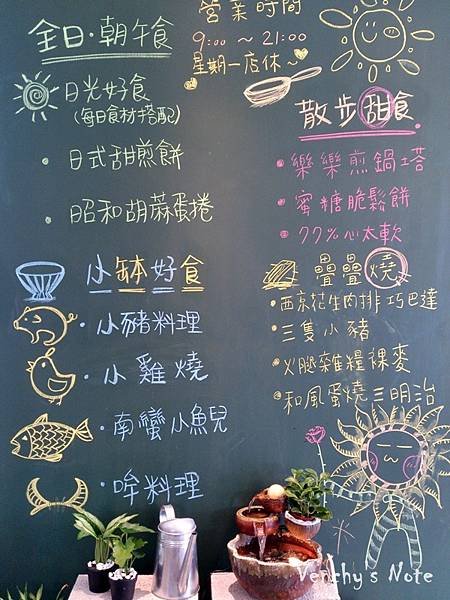 全日·朝午食
日光好食
(每日食材搭配)
·日式甜煎餅
·昭和胡蔴蛋捲
小缽好食
·小豬料理
·小雞燒
·南蠻小魚兒
·哞料理
營業時間
9:00～21:00
星期一店休～
散步甜食
·樂樂煎鍋塔
·蜜糖脆鬆餅
·77%心太軟
疊疊燒
·西京花生肉排巧巴達
·三隻小豬
·火腿雜糧裸麥
·和風蛋燒三明治
Verthy's Note